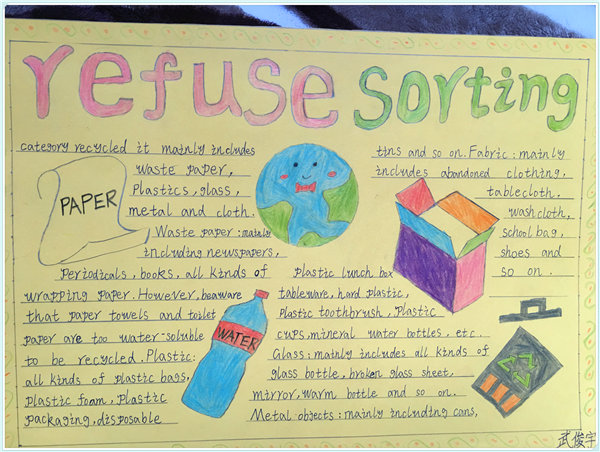 refuse sorting
category recycled it mainly includes
waste paper,
plastics, glass,
metal and cloth.
Waste paper: mainly
including newspapers,
periodicals, books, all kinds of
wrapping paper. However, beaware
that paper towels and toilet
paper are too water-soluble
to be recycled. Plastic:
all kinds of plastic bags,
plastic foam, Plastic
packaging, disposable
PAPER
WATER
plastic lunch box
tableware, hard plastic,
Plastic toothbrush, Plastic
cups, mineral water bottles, etc.
Glass: mainly includes all kinds of
glass bottle, broken glass sheet,
mirror, warm bottle and so on.
Metal objects: mainly including cans,
tins and so on. Fabric: mainly
includes abandoned clothing,
tablecloth,
wash cloth,
school bag,
shoes and
so on.
武俊宇